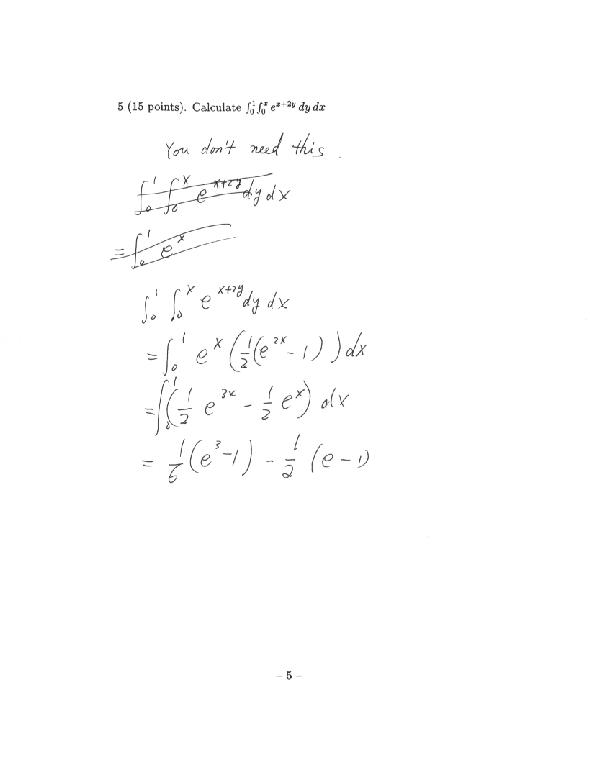 5 (15 points). Calculate ∫₀¹∫₀ˣ eˣ⁺²ʸ dy dx
You don't need this.
∫₀¹ ∫₀ˣ eˣ⁺²ʸ dy dx
= ∫₀¹ eˣ
∫₀¹ ∫₀ˣ eˣ⁺²ʸ dy dx
= ∫₀¹ eˣ (1/2 (e²ˣ - 1)) dx
= ∫₀¹ (1/2 e³ˣ - 1/2 eˣ) dx
= 1/6 (e³ - 1) - 1/2 (e - 1)
- 5 -